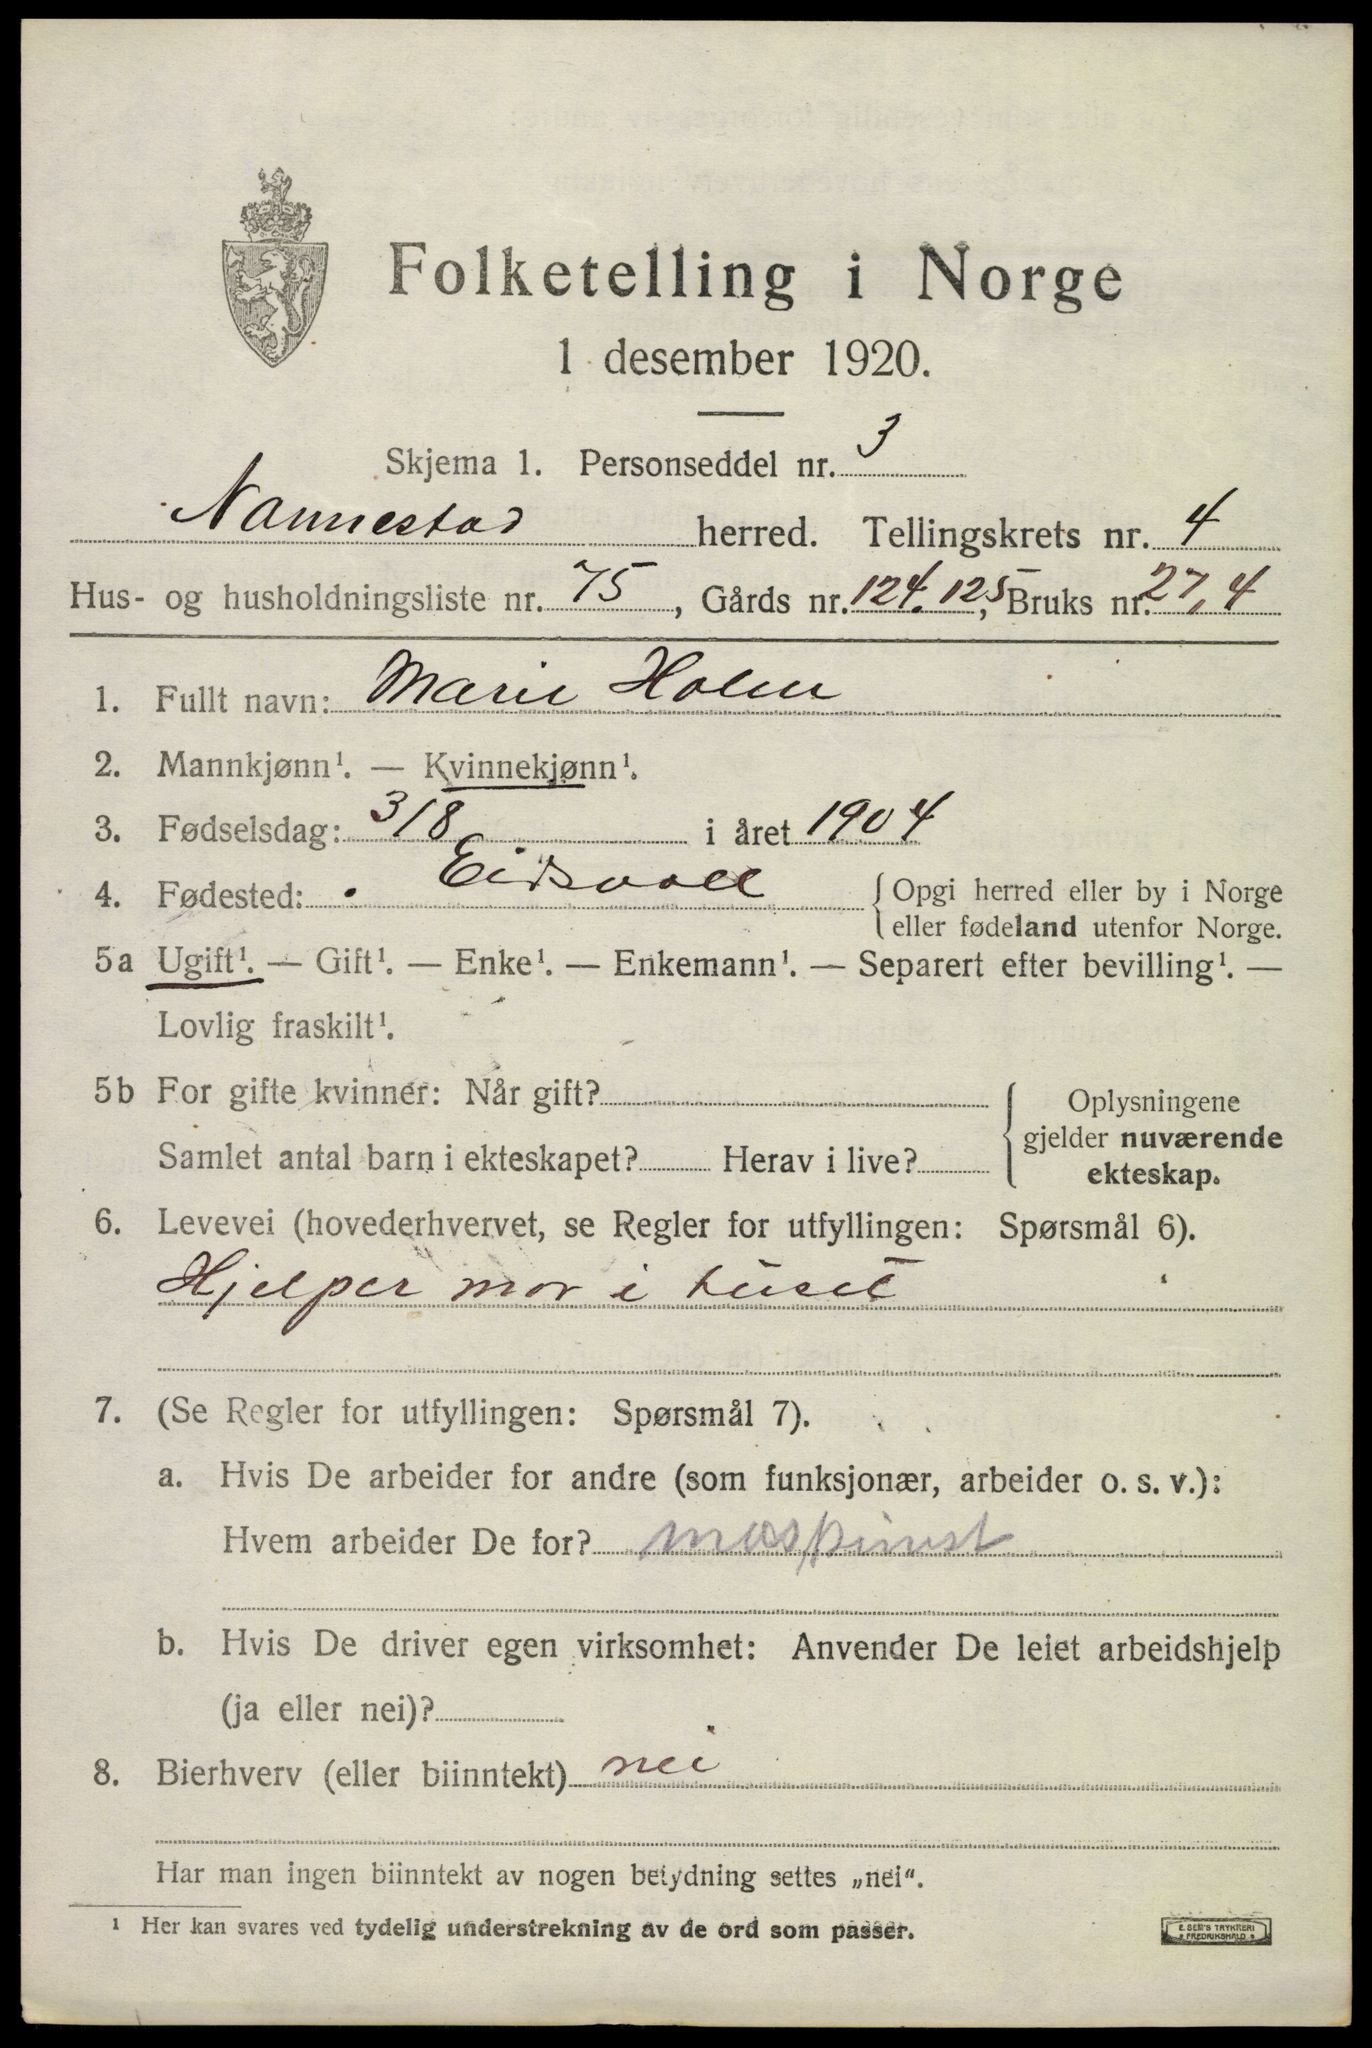 Folketelling i Norge
1 desember 1920.
Skjema 1. Personseddel nr. 3
Nannestad herred. Tellingskrets nr. 4
Hus- og husholdningsliste nr. 75, Gårds nr. 124.125, Bruks nr. 27,4
1. Fullt navn: Marie Holm
2. Mannkjønn¹. — Kvinnekjønn¹.
3. Fødselsdag: 3/8 i året 1904
4. Fødested: Eidsvoll {Opgi herred eller by i Norge
eller fødeland utenfor Norge.
5a Ugift¹. — Gift¹. — Enke¹. — Enkemann¹. — Separert efter bevilling¹. —
Lovlig fraskilt¹.
5b For gifte kvinner: Når gift? Oplysningene
gjelder nuværende
Samlet antal barn i ekteskapet? Herav i live? ekteskap.
6. Levevei (hovederhvervet, se Regler for utfyllingen: Spørsmål 6).
Hjelper mor i huset
7. (Se Regler for utfyllingen: Spørsmål 7).
a. Hvis De arbeider for andre (som funksjonær, arbeider o. s. v.):
Hvem arbeider De for? maskinist
b. Hvis De driver egen virksomhet: Anvender De leiet arbeidshjelp
(ja eller nei)?
8. Bierhverv (eller biinntekt) nei
Har man ingen biinntekt av nogen betydning settes „nei“.
¹ Her kan svares ved tydelig understrekning av de ord som passer.
E. SEM'S TRYKKERI
FREDRIKSHALD